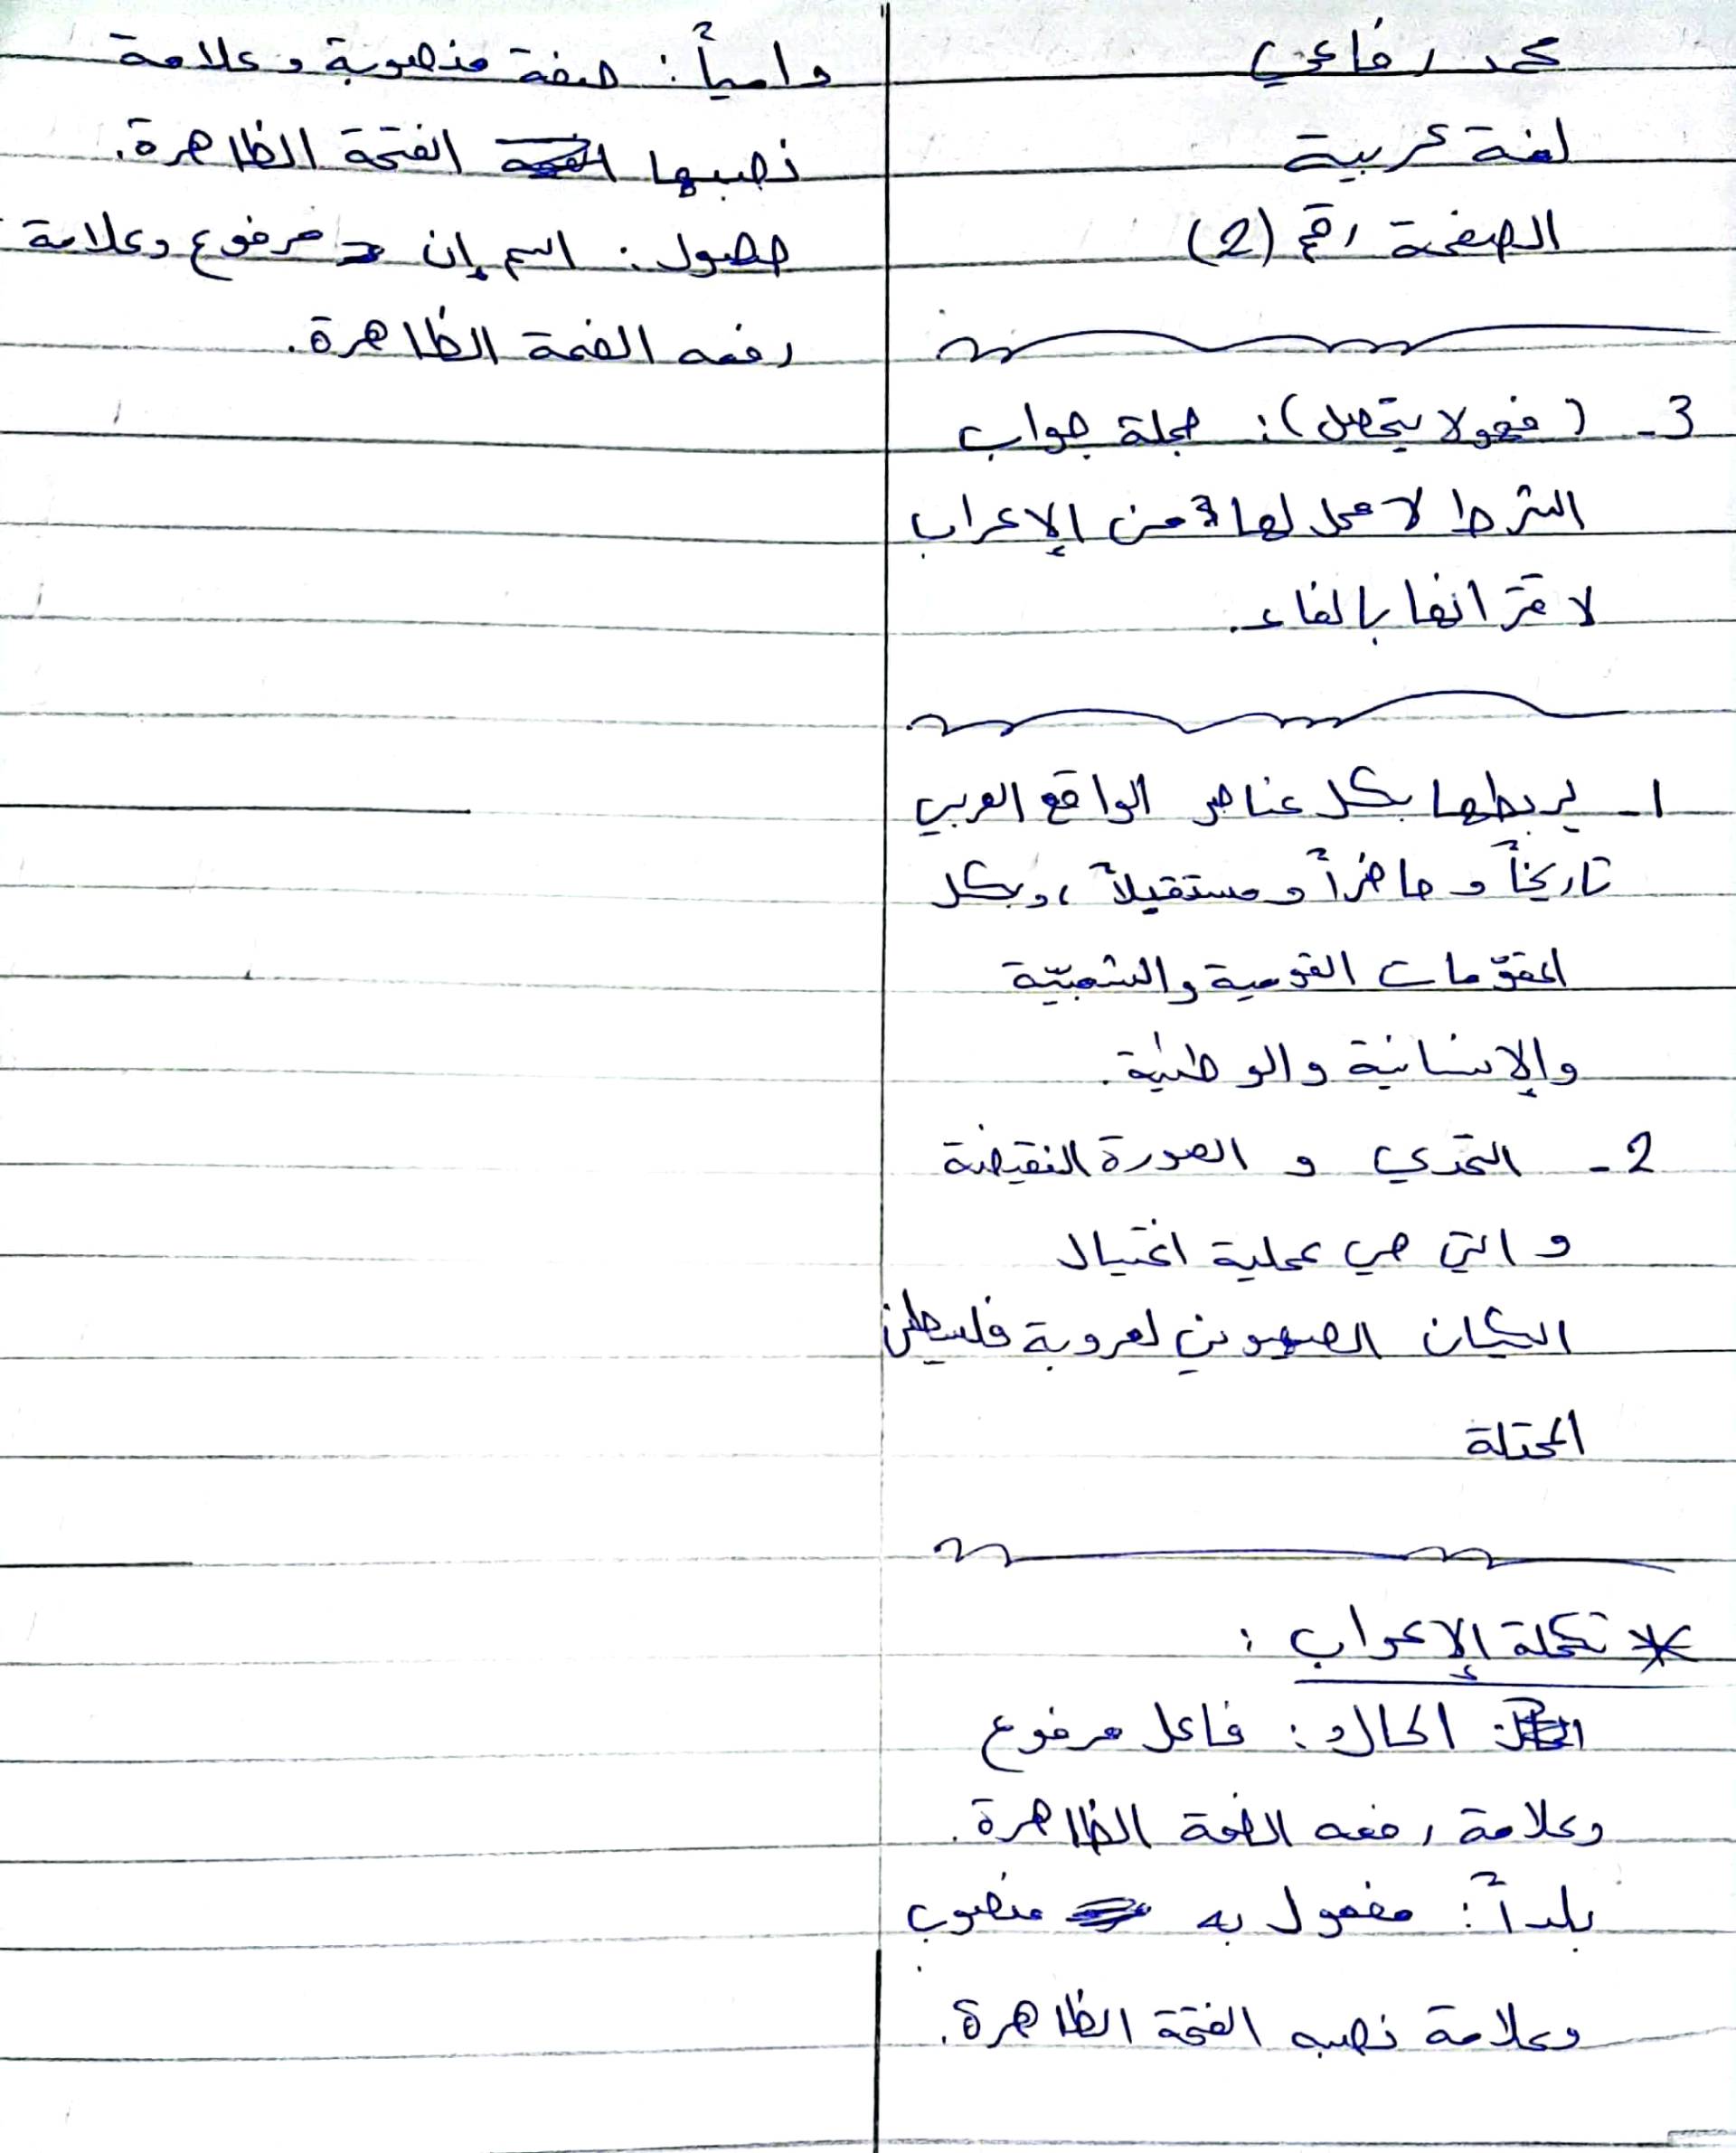 محمد رفاعي
لغة عربية
الصفحة رقم (2)
3- (فهو لا يتصل): جملة جواب
الشرط لا محل لها من الإعراب
لاقترانها بالفاء.
1- يربطها بكل عناصر الواقع العربي
تاريخاً و حاضراً و مستقبلاً، وبكل
المقوّمات القومية والشعبيّة
والإنسانية والوطنية.
2- التحدي و الصورة النقيضة
و التي هي عملية اغتيال
الكيان الصهيوني لعروبة فلسطين
المحتلة
* تكملة الإعراب:
الحال: فاعل مرفوع
وعلامة رفعه الضمة الظاهرة.
بلداً: مفعول به منصوب
وعلامة نصبه الفتحة الظاهرة.
دامياً: صفة منصوبة وعلامة
نصبها الفتحة الظاهرة.
حصول: اسم إن مرفوع وعلامة
رفعه الضمة الظاهرة.